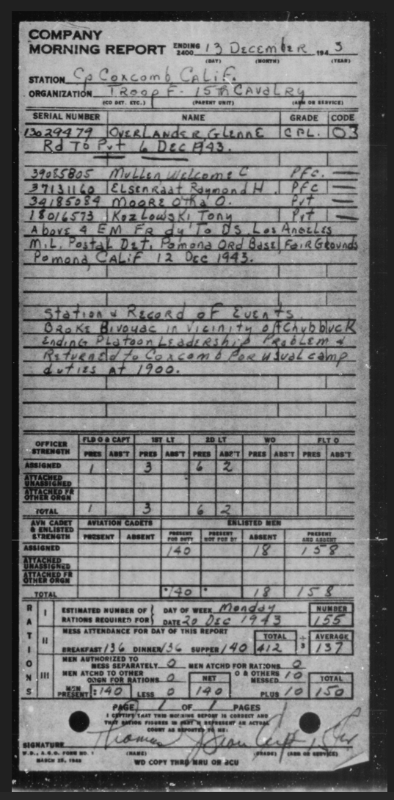 COMPANY
MORNING REPORT ENDING 2400 13 December 1943
(DAY) (MONTH) (YEAR)
STATION Cp Coxcomb Calif.
ORGANIZATION Troop F. 15th Cavalry
(CO DET. ETC.) (PARENT UNIT) (ARM OR SERVICE)
SERIAL NUMBER NAME GRADE CODE
13029479 Overlander Glenn E CPL. 03
Rd To Pvt 6 Dec 1943.
39055805 Mullen Welcome C Pfc. —
37131160 Elsenraat Raymond H. Pfc —
34185084 Moore Otha O. Pvt —
18016573 Kozlowski Tony Pvt —
Above 4 EM Fr dy To DS Los Angeles
Mil Postal Det, Pomona Ord Base, Fair Grounds
Pomona Calif 12 Dec 1943.
Station & Record of Events
Broke Bivouac in vicinity of Chubbuck
Ending Platoon Leadership Problem &
Returned to Coxcomb for usual camp
duties at 1900.
OFFICER STRENGTH FLD O & CAPT 1ST LT 2D LT WO FLT O
PRES ABS'T PRES ABS'T PRES ABS'T PRES ABS'T PRES ABS'T
ASSIGNED 1 3 6 2
ATTACHED UNASSIGNED
ATTACHED FR OTHER ORGN
TOTAL 1 3 6 2
AVN CADET & ENLISTED STRENGTH AVIATION CADETS ENLISTED MEN
PRESENT ABSENT PRESENT FOR DUTY PRESENT NOT FOR DY ABSENT PRESENT AND ABSENT
ASSIGNED 140 18 158
ATTACHED UNASSIGNED
ATTACHED FR OTHER ORGN
TOTAL 140 18 158
RATIONS
I ESTIMATED NUMBER OF RATIONS REQUIRED FOR DAY OF WEEK Monday NUMBER
DATE 20 Dec 1943 155
II MESS ATTENDANCE FOR DAY OF THIS REPORT TOTAL AVERAGE
BREAKFAST 136 DINNER 136 SUPPER 140 412 ÷ 3 137
III MEN AUTHORIZED TO MESS SEPARATELY 0 MEN ATCHD FOR RATIONS 0
MEN ATCHD TO OTHER OGN FOR RATIONS 0 NET O & OTHERS MESSED 10
MEN PRESENT 140 LESS 0 140 PLUS 10 150
PAGE 1 OF 1 PAGES
I CERTIFY THAT THIS MORNING REPORT IS CORRECT AND
COUNT AS REPORTED TO ME:
SIGNATURE Thomas
(NAME) (GRADE) (ARM OR SERVICE)
W.D., A.G.O. FORM NO. 1
WD COPY THRU MRU OR SCU